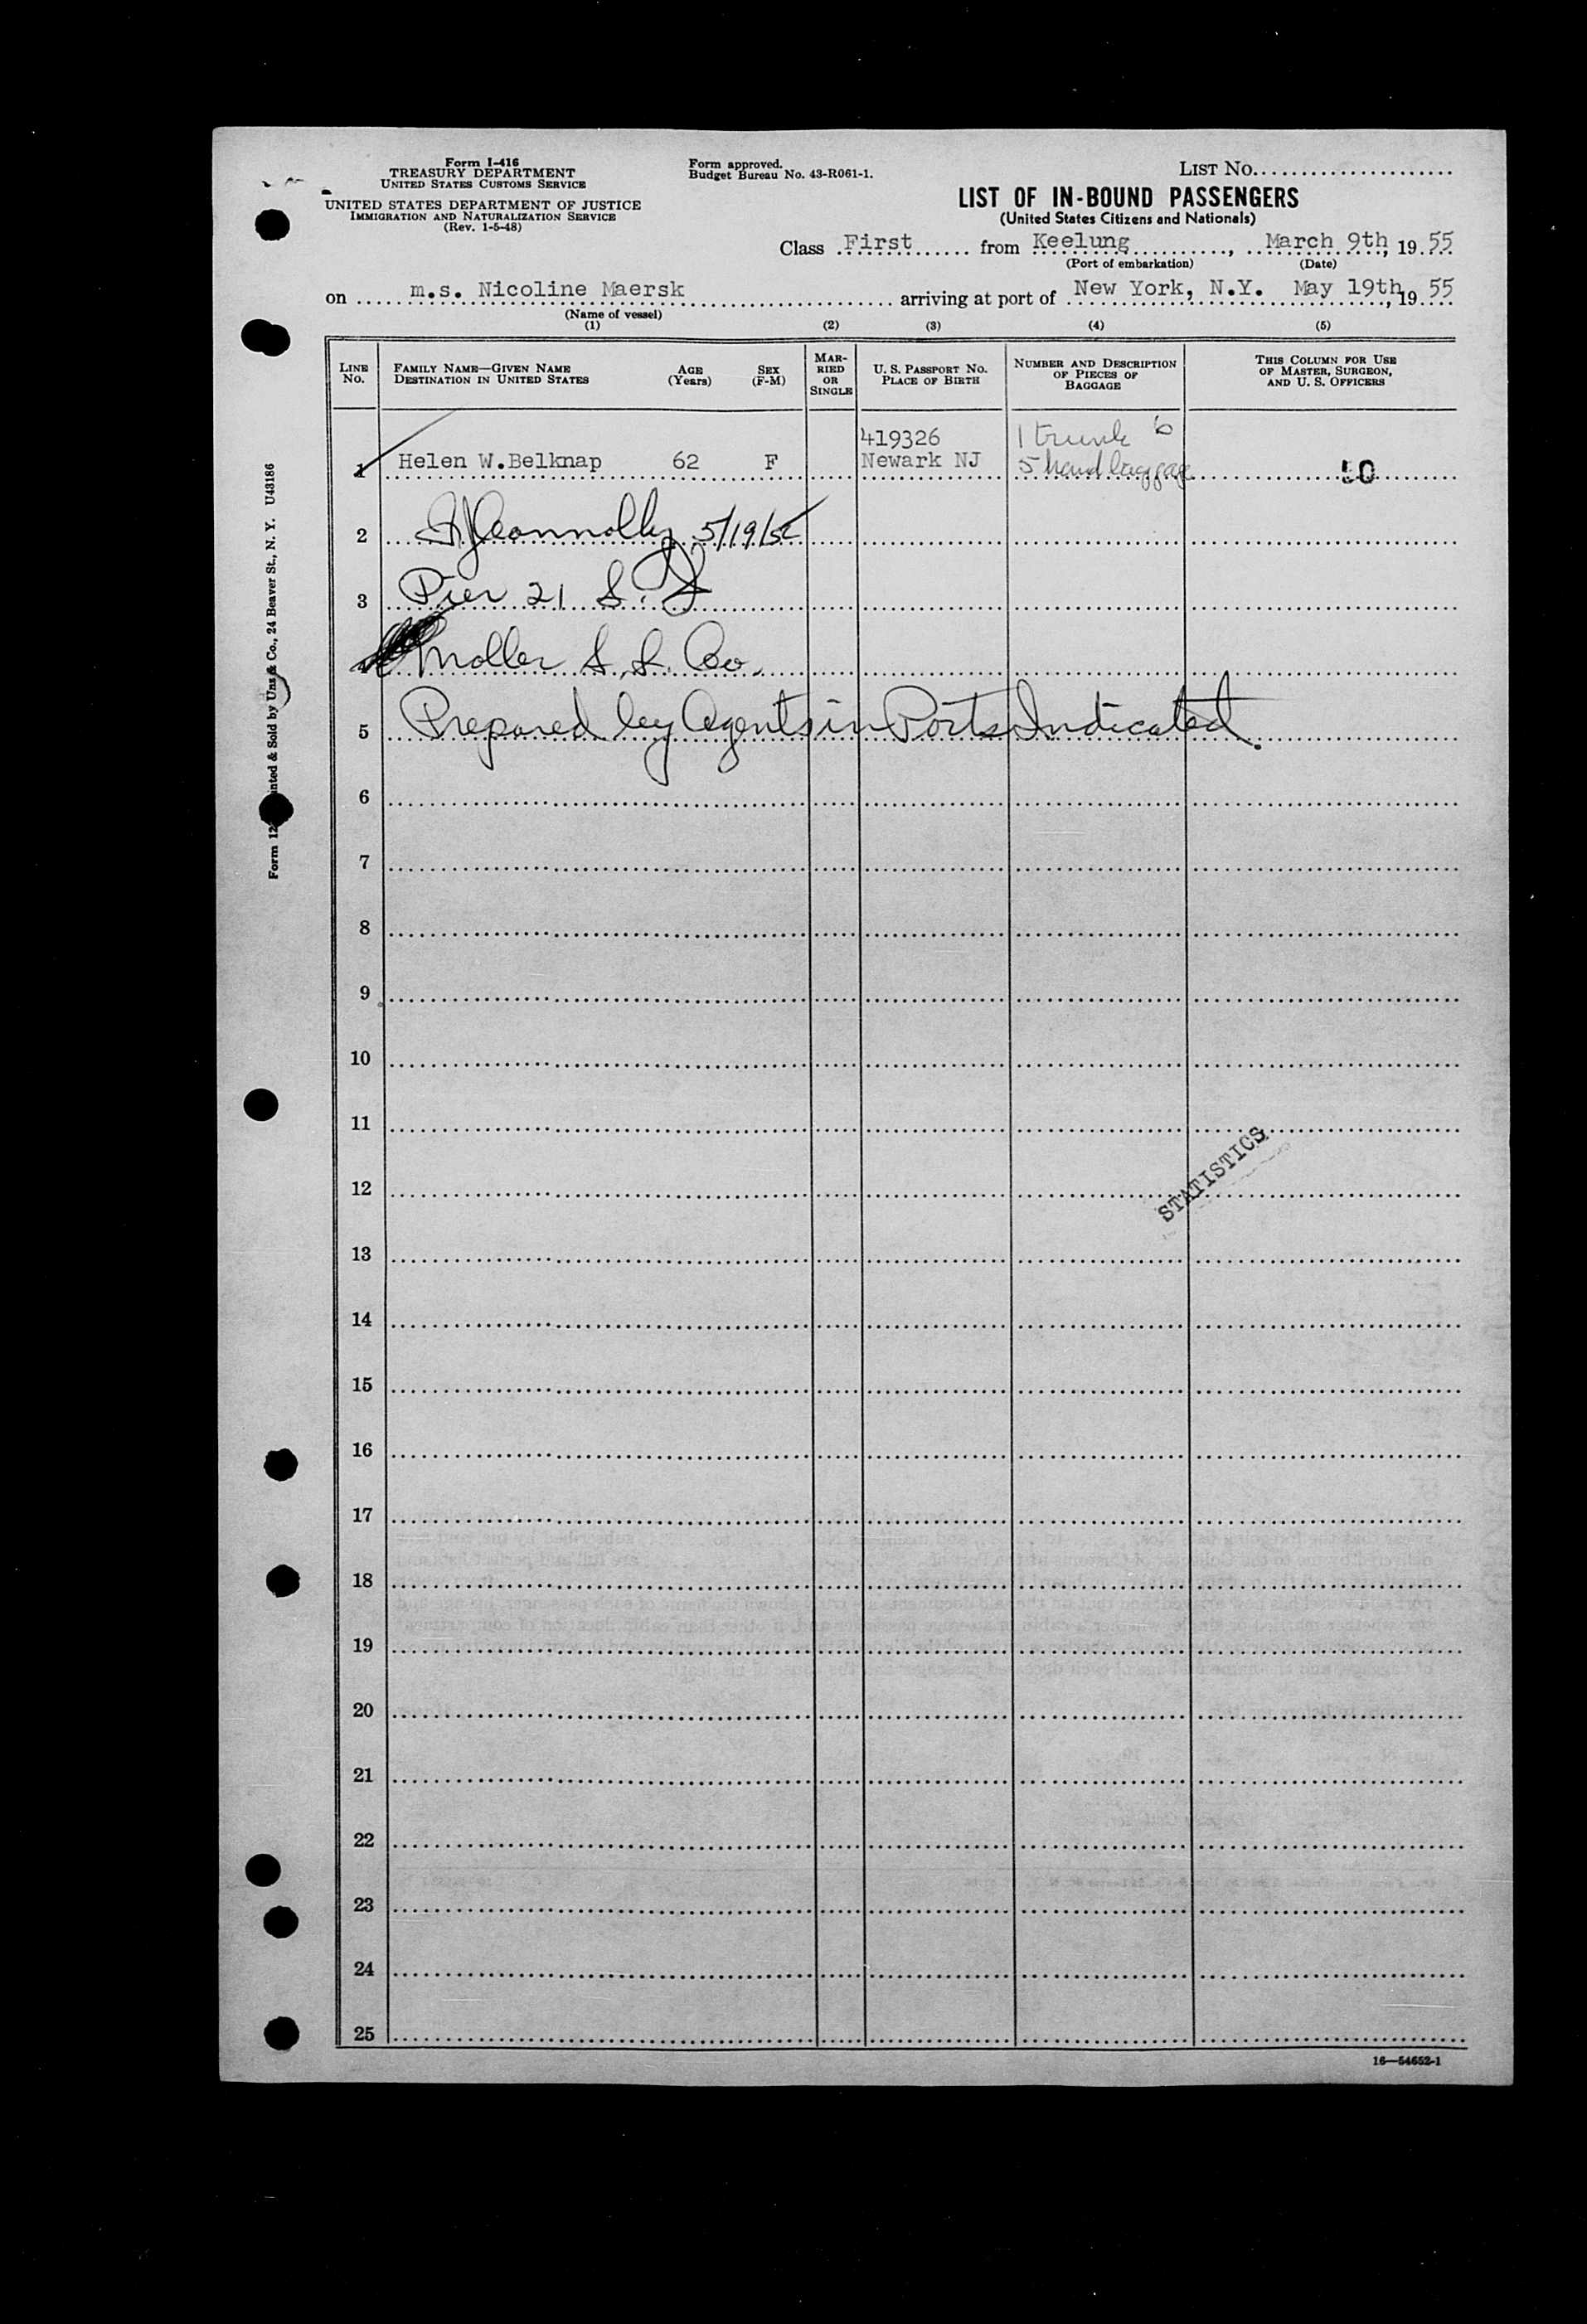 Form I-416
TREASURY DEPARTMENT
UNITED STATES CUSTOMS SERVICE
UNITED STATES DEPARTMENT OF JUSTICE
IMMIGRATION AND NATURALIZATION SERVICE
(Rev. 1-5-48)
Form approved.
Budget Bureau No. 43-R061-1.
LIST NO.
LIST OF IN-BOUND PASSENGERS
(United States Citizens and Nationals)
Class First from Keelung, March 9th, 1955
(Port of embarkation) (Date)
on m.s. Nicoline Maersk arriving at port of New York, N.Y. May 19th, 1955
(Name of vessel)
(1) (2) (3) (4) (5)
LINE NO.
FAMILY NAME—GIVEN NAME
DESTINATION IN UNITED STATES
AGE (Years)
SEX (F-M)
MARRIED OR SINGLE
U. S. PASSPORT NO.
PLACE OF BIRTH
NUMBER AND DESCRIPTION OF PIECES OF BAGGAGE
THIS COLUMN FOR USE OF MASTER, SURGEON, AND U. S. OFFICERS
419326 1 trunk 6
1 Helen W.Belknap 62 F Newark NJ 5 hand luggage
2 Connolly 5/19/55
3 Pier 21 S.
4 Moller S.S. Co.
5 Prepared by Agents in Ports Indicated.
6
7
8
9
10
11
12
STATISTICS
13
14
15
16
17
18
19
20
21
22
23
24
25
16—54652-1
Co., 24 Beaver St., N. Y. U43186